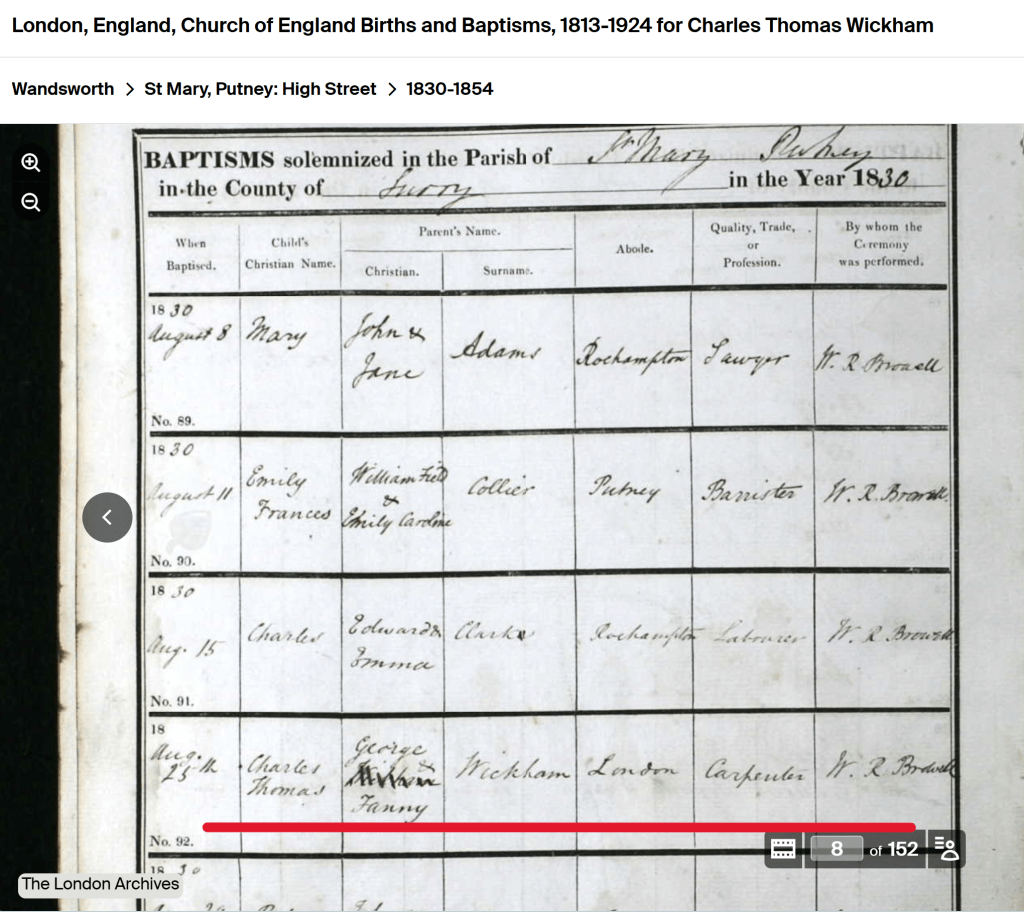 London, England, Church of England Births and Baptisms, 1813-1924 for Charles Thomas Wickham
Wandsworth > St Mary, Putney: High Street > 1830-1854
BAPTISMS solemnized in the Parish of St Mary Putney
in the County of Surry in the Year 1830
When Baptised. Child's Christian Name. Parent's Name. Christian. Surname. Abode. Quality, Trade, or Profession. By whom the Ceremony was performed.
1830
August 8 Mary John & Jane Adams Roehampton Sawyer W. R. Browell
No. 89.
1830
August 11 Emily Frances William Field & Emily Caroline Collier Putney Barrister W. R. Browell
No. 90.
1830
Aug. 15 Charles Edward & Emma Clarke Roehampton Labourer W. R. Browell
No. 91.
18
Aug. 25th Charles Thomas George & Fanny Wickham London Carpenter W. R. Browell
No. 92.
1830
8 of 152
The London Archives